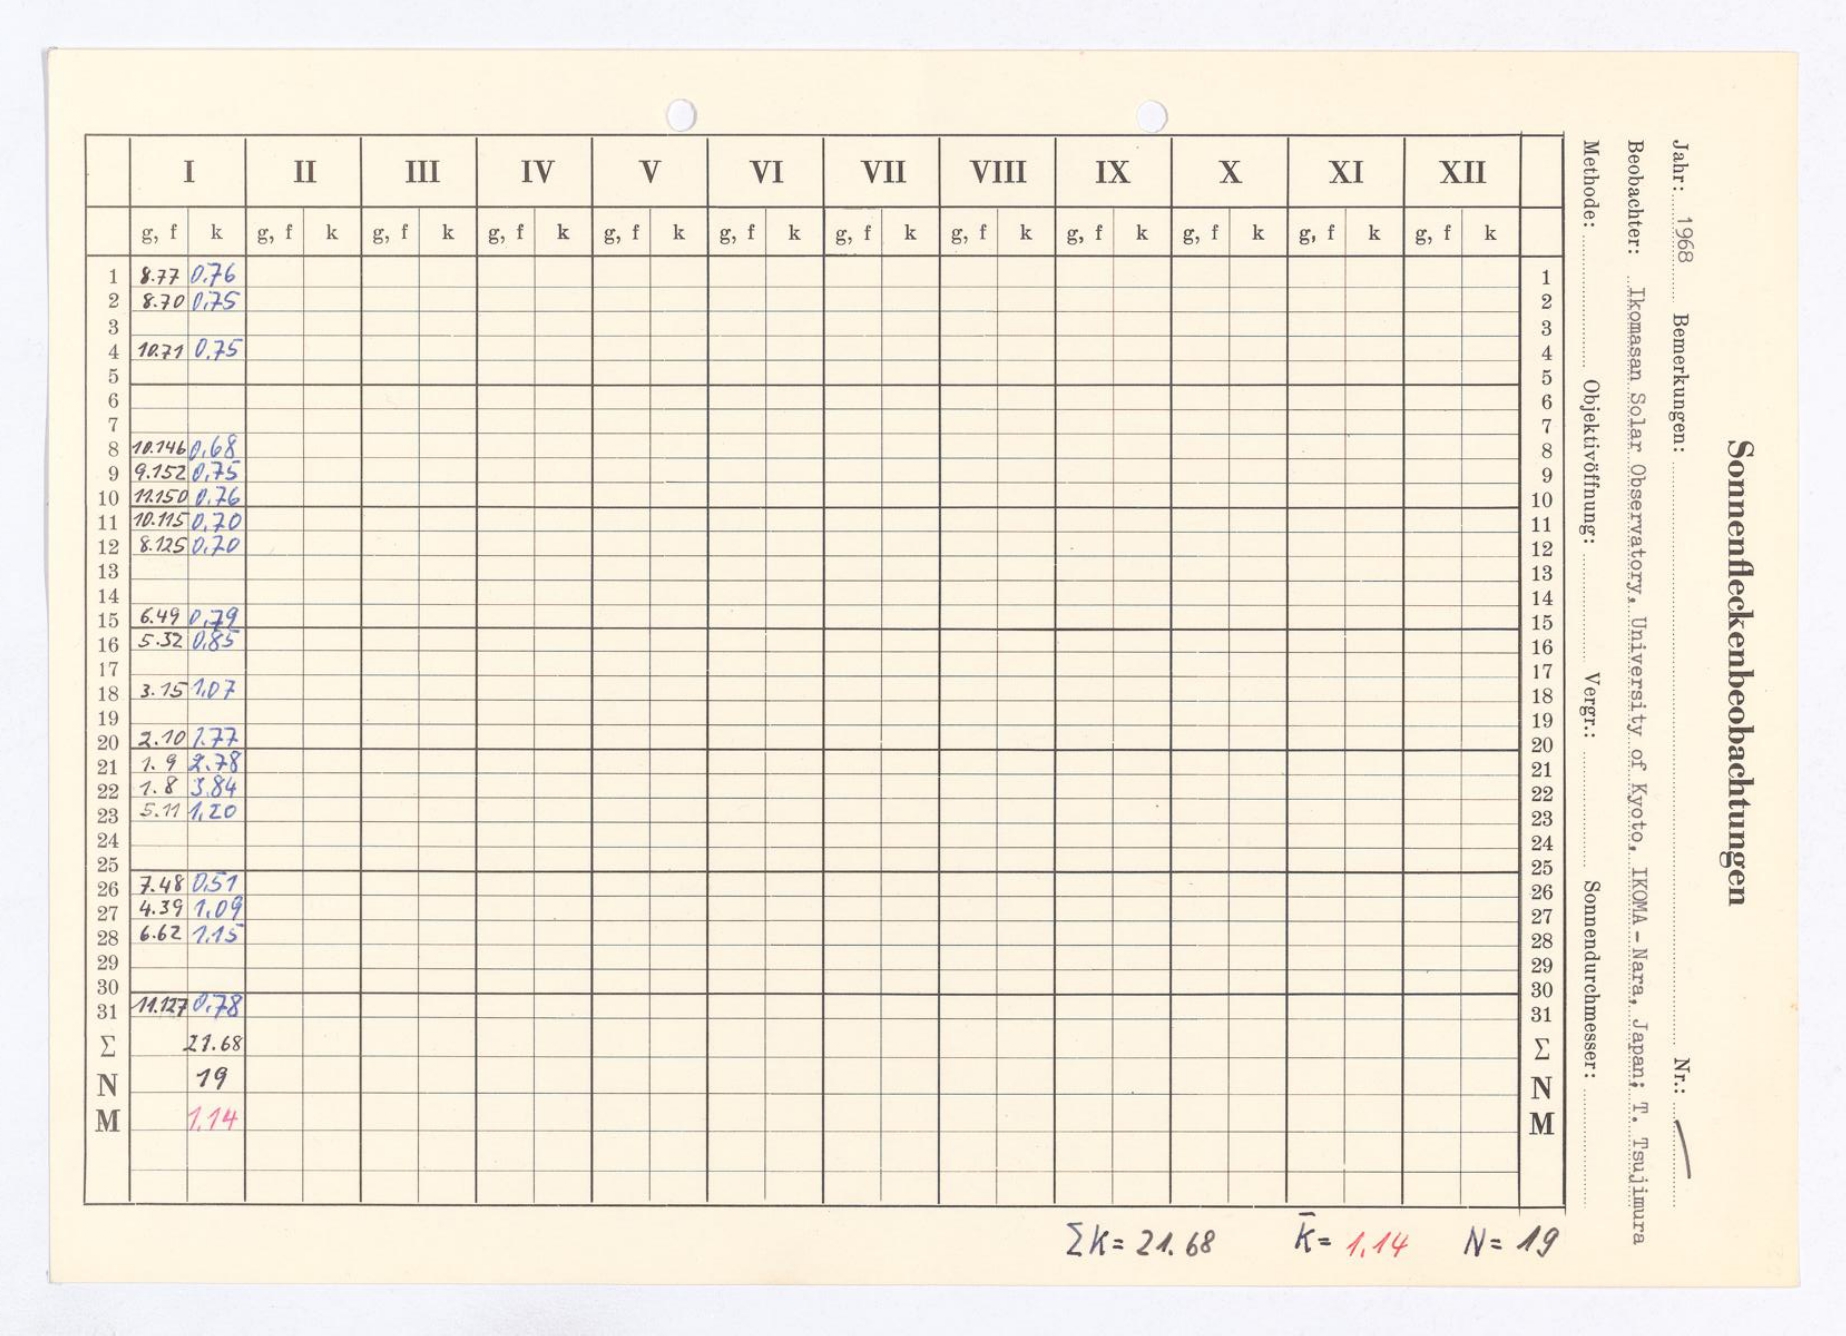 Sonnenfleckenbeobachtungen
Jahr: 1968 Bemerkungen: Nr.: /
Beobachter: Ikomasan Solar Observatory, University of Kyoto, IKOMA-Nara, Japan; T. Tsujimura
Methode: Objektivöffnung: Vergr.: Sonnendurchmesser:
I II III IV V VI VII VIII IX X XI XII
g, f k g, f k g, f k g, f k g, f k g, f k g, f k g, f k g, f k g, f k g, f k g, f k
1 8.77 0.76 1
2 8.70 0.75 2
3 3
4 10.71 0.75 4
5 5
6 6
7 7
8 10.146 0.68 8
9 9.152 0.75 9
10 11.150 0.76 10
11 10.115 0.70 11
12 8.125 0.70 12
13 13
14 14
15 6.49 0.79 15
16 5.32 0.85 16
17 17
18 3.15 1.07 18
19 19
20 2.10 1.77 20
21 1.9 2.78 21
22 1.8 3.84 22
23 5.11 1.20 23
24 24
25 25
26 7.48 0.51 26
27 4.39 1.09 27
28 6.62 1.15 28
29 29
30 30
31 11.127 0.78 31
Σ 21.68 Σ
N 19 N
M 1.14 M
Σk = 21.68 k̄ = 1.14 N = 19